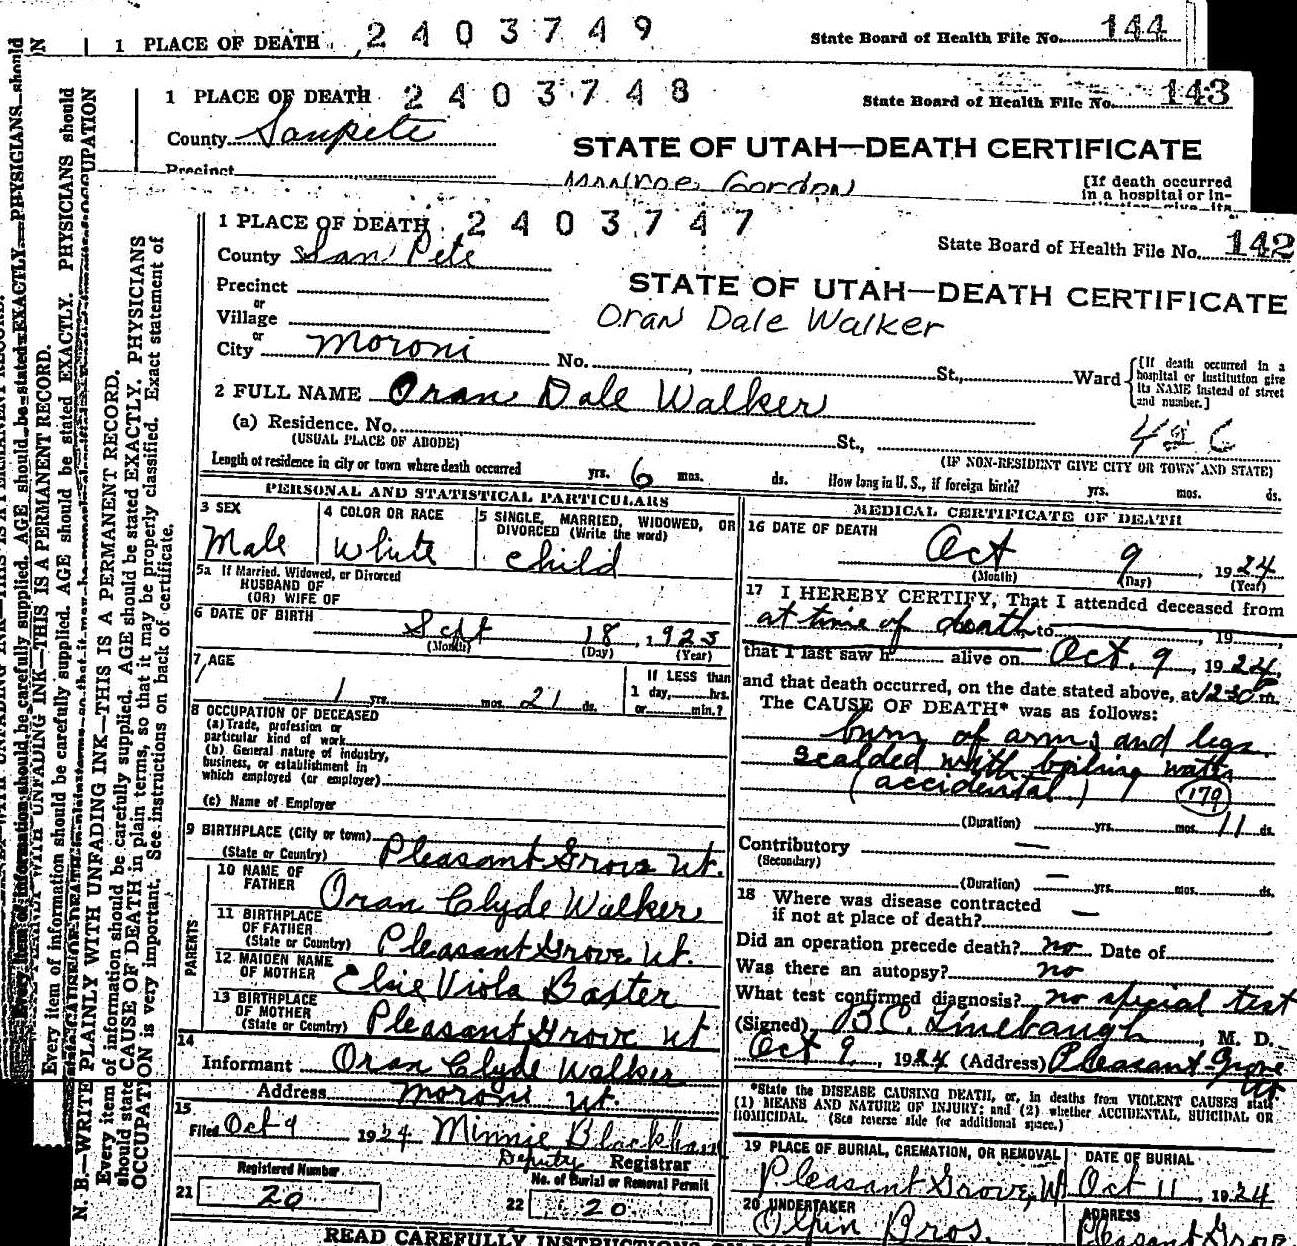 1 PLACE OF DEATH 2403749 State Board of Health File No. 144
1 PLACE OF DEATH 2403748 State Board of Health File No. 143
County Sanpete
STATE OF UTAH—DEATH CERTIFICATE
Precinct Monroe Gordon [If death occurred
in a hospital or in-
1 PLACE OF DEATH 2403747 State Board of Health File No. 142
County San Pete
STATE OF UTAH—DEATH CERTIFICATE
Precinct
or
Village
Oran Dale Walker
or
City Moroni No. St., Ward
[If death occurred in a
hospital or institution give
its NAME instead of street
and number.]
2 FULL NAME Oran Dale Walker
(a) Residence. No. St.,
(USUAL PLACE OF ABODE)
(IF NON-RESIDENT GIVE CITY OR TOWN AND STATE)
Length of residence in city or town where death occurred yrs. 6 mos. ds. How long in U. S., if foreign birth? yrs. mos. ds.
PERSONAL AND STATISTICAL PARTICULARS
3 SEX
Male
4 COLOR OR RACE
White
5 SINGLE, MARRIED, WIDOWED, OR
DIVORCED (Write the word)
child
5a If Married, Widowed, or Divorced
HUSBAND OF
(OR) WIFE OF
6 DATE OF BIRTH Sept 18, 1923
(Month) (Day) (Year)
7 AGE
1 yrs. mos. 21 ds.
If LESS than
1 day, hrs.
or min.?
8 OCCUPATION OF DECEASED
(a) Trade, profession or
particular kind of work
(b) General nature of industry,
business, or establishment in
which employed (or employer)
(c) Name of Employer
9 BIRTHPLACE (City or town)
(State or Country) Pleasant Grove Ut.
PARENTS
10 NAME OF
FATHER Oran Clyde Walker
11 BIRTHPLACE
OF FATHER
(State or Country) Pleasant Grove Ut.
12 MAIDEN NAME
OF MOTHER Elsie Viola Baxter
13 BIRTHPLACE
OF MOTHER
(State or Country) Pleasant Grove Ut
14
Informant Oran Clyde Walker
Address Moroni Ut.
15
Filed Oct 9 1924 Minnie Blackham
Deputy Registrar
Registered Number
21 20
No. of Burial or Removal Permit
22 20
MEDICAL CERTIFICATE OF DEATH
16 DATE OF DEATH
Oct 9, 1924
(Month) (Day) (Year)
17 I HEREBY CERTIFY, That I attended deceased from
at time of death to , 19
that I last saw h alive on Oct. 9, 1924
and that death occurred, on the date stated above, at 1230 m.
The CAUSE OF DEATH* was as follows:
burn of arms and legs
scalded with boiling water
(accidental) 179
(Duration) yrs. mos. 11 ds.
Contributory —
(Secondary)
(Duration) — yrs. mos. ds.
18 Where was disease contracted
if not at place of death? —
Did an operation precede death? no Date of
Was there an autopsy? no
What test confirmed diagnosis? no special test
(Signed) B.C. Linebaugh, M. D.
Oct 9, 1924 (Address) Pleasant Grove
Ut
*State the DISEASE CAUSING DEATH, or, in deaths from VIOLENT CAUSES state
(1) MEANS AND NATURE OF INJURY; and (2) whether ACCIDENTAL, SUICIDAL OR
HOMICIDAL. (See reverse side for additional space.)
19 PLACE OF BURIAL, CREMATION, OR REMOVAL
Pleasant Grove, Ut
DATE OF BURIAL
Oct 11, 1924
20 UNDERTAKER
Olpin Bros.
ADDRESS
Pleasant Grove
READ CAREFULLY INSTRUCTIONS ON
N. B.—WRITE PLAINLY WITH UNFADING INK—THIS IS A PERMANENT RECORD.
Every item of information should be carefully supplied. AGE should be stated EXACTLY. PHYSICIANS
should state CAUSE OF DEATH in plain terms, so that it may be properly classified. Exact statement of
OCCUPATION is very important. See instructions on back of certificate.